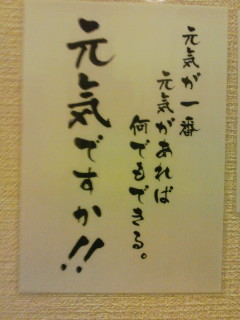 元気が一番
元気があれば
何でもできる。
元気ですか!!